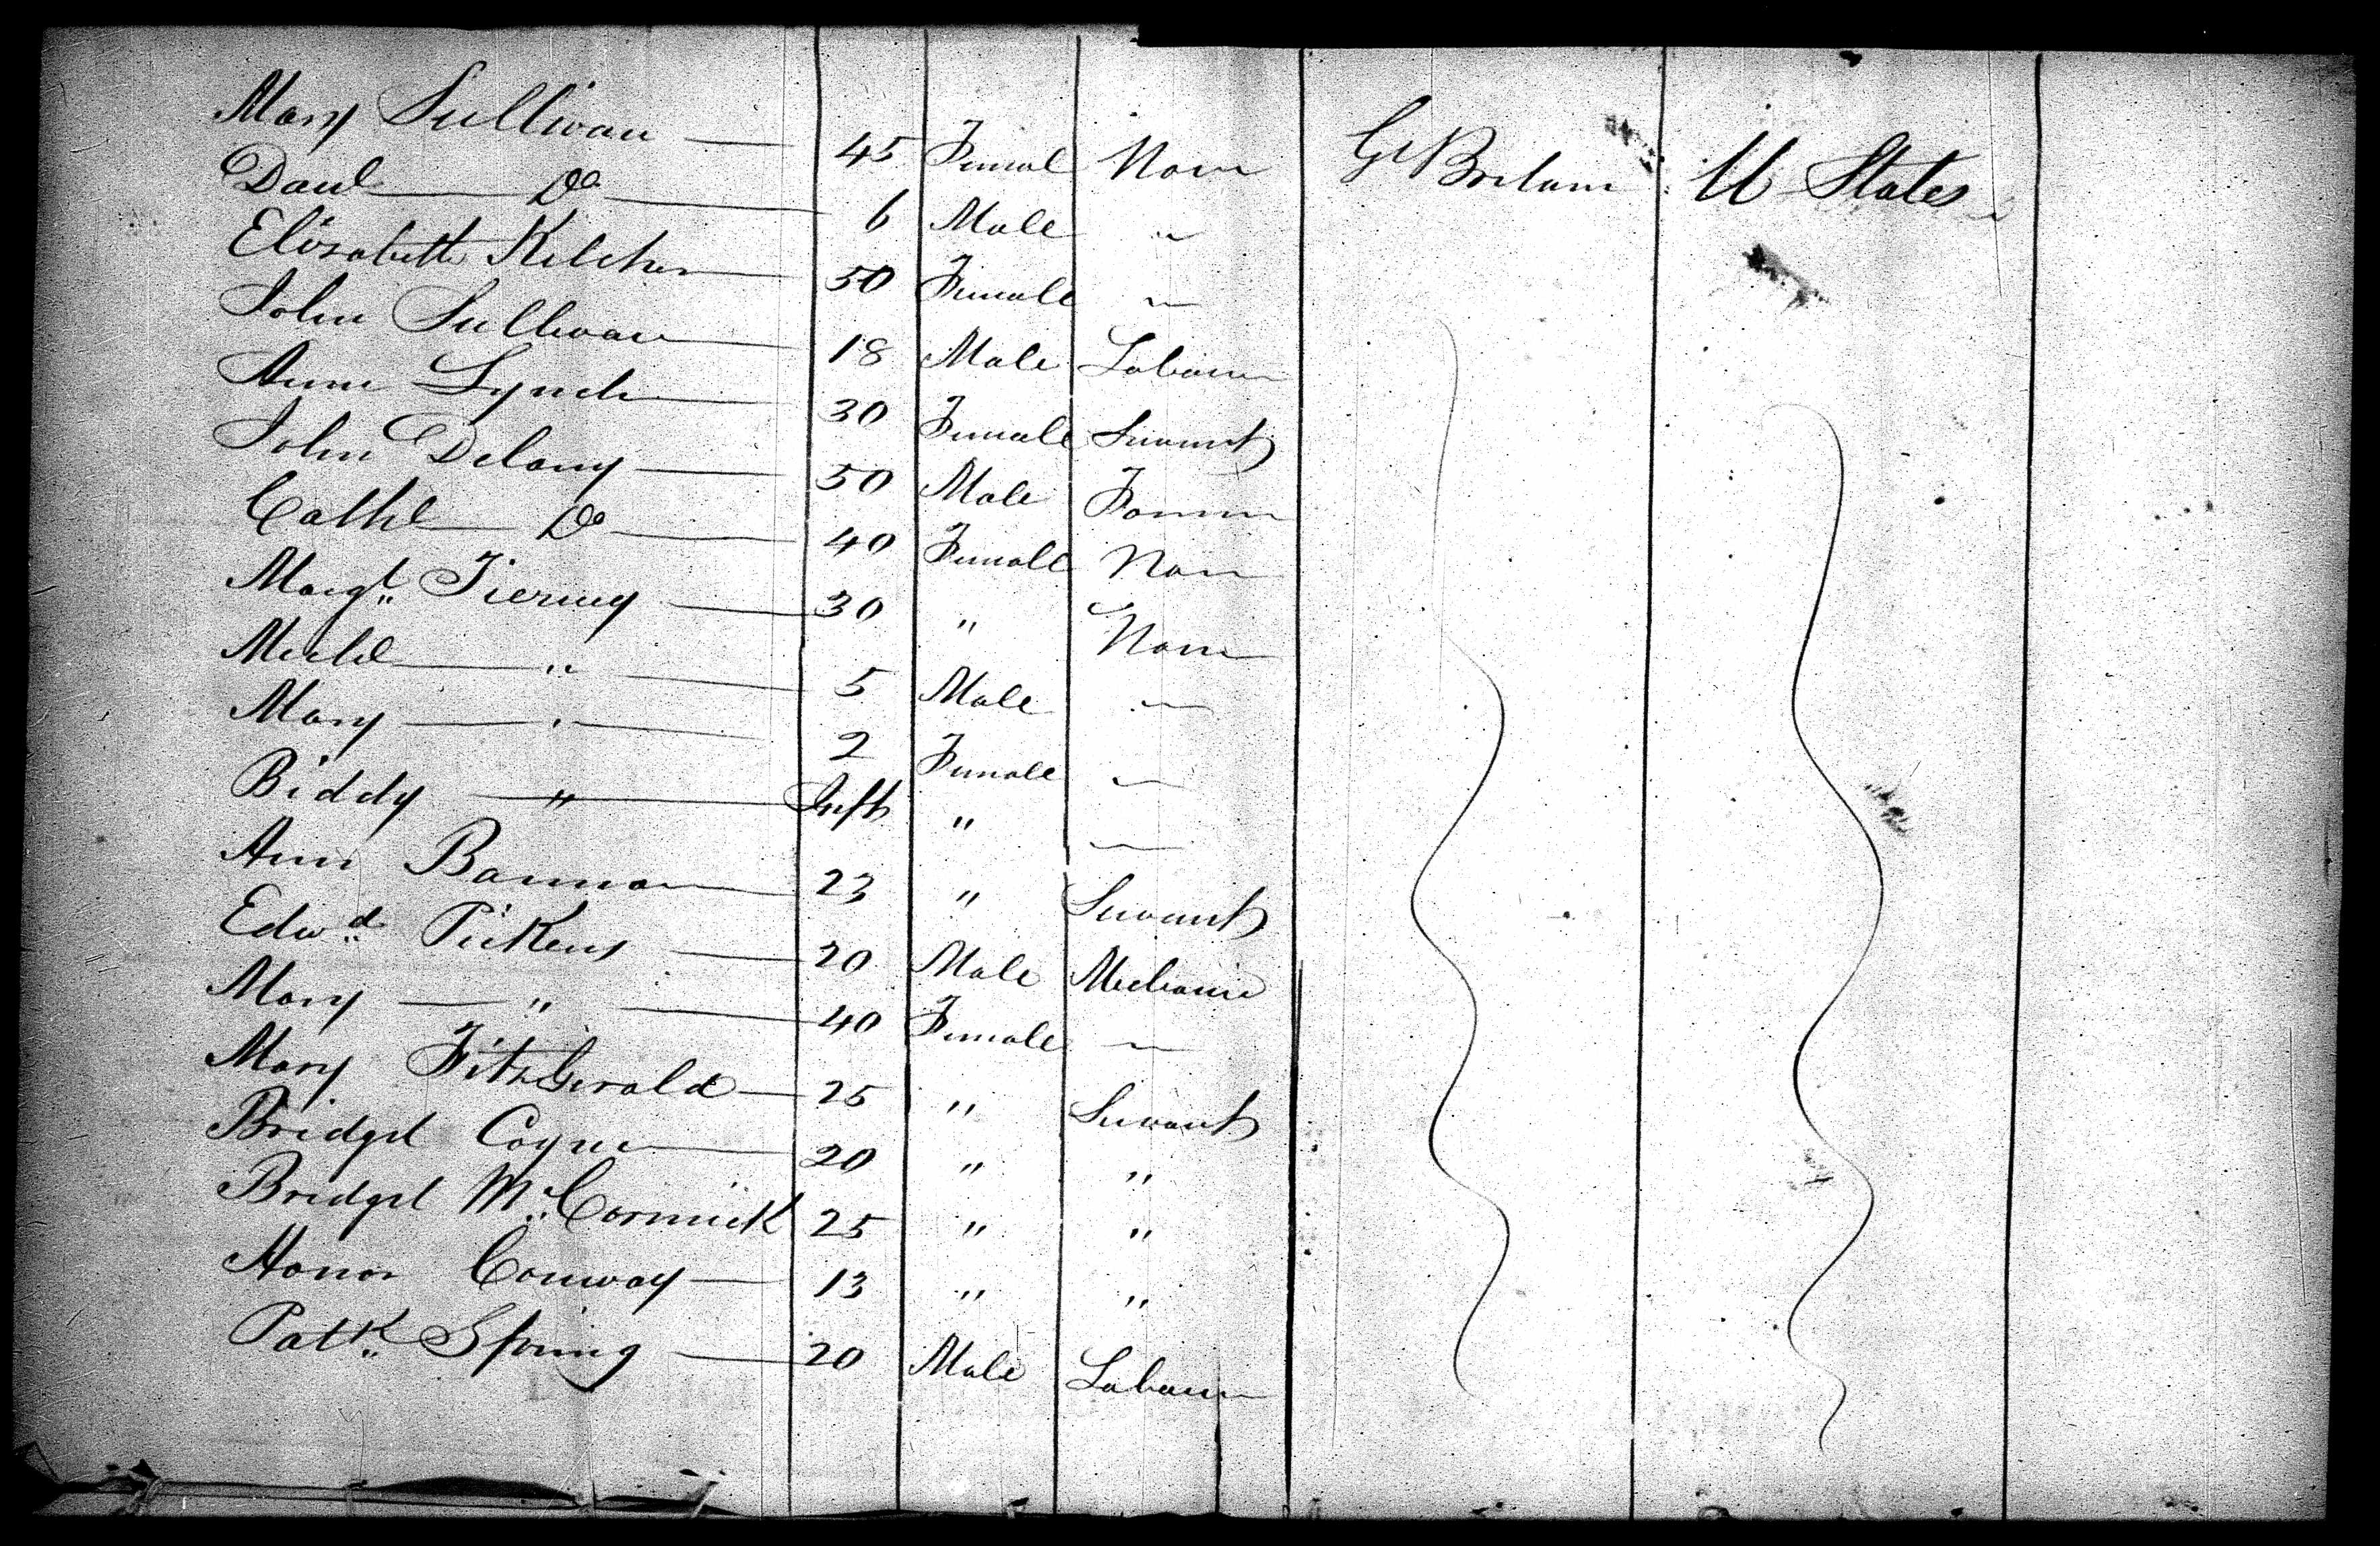 Mary Sullivan 45 Femal None Gt Britain U States
Danl Do 6 Male "
Elizabeth Kelcher 50 Female "
John Sullivan 18 Male Labourer
Anne Lynch 30 Female Servant
John Delany 50 Male Farmer
Cathe Do 40 Female None
Margt Tierney 30 " None
Michl " 5 Male "
Mary " 2 Female "
Biddy " Inft " "
Ann Bannon 23 " Servant
Edwd Pickens 20 Male Mechanic
Mary " 40 Female "
Mary FitzGerald 25 " Servant
Bridget Coyne 20 " "
Bridget McCormick 25 " "
Honor Conway 13 " "
Patk Spring 20 Male Labourer